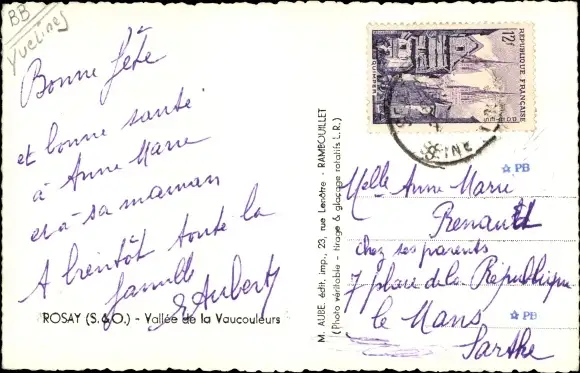 BB
Yvelines
Bonne fête
et bonne santé
à Anne Marie
et à sa maman
A bientôt toute la
famille
E Aubert
ROSAY (S.&O.) - Vallée de la Vaucouleurs
M. AUBE, édit. imp., 23, rue Lenôtre - RAMBOUILLET
(Photo véritable - tirage & glaçage rotatifs L.R.)
12f
RÉPUBLIQUE FRANÇAISE
QUIMPER
POSTES
PB
Melle Anne Marie
Renault
chez ses parents
7 place de la République
le Mans
PB
Sarthe